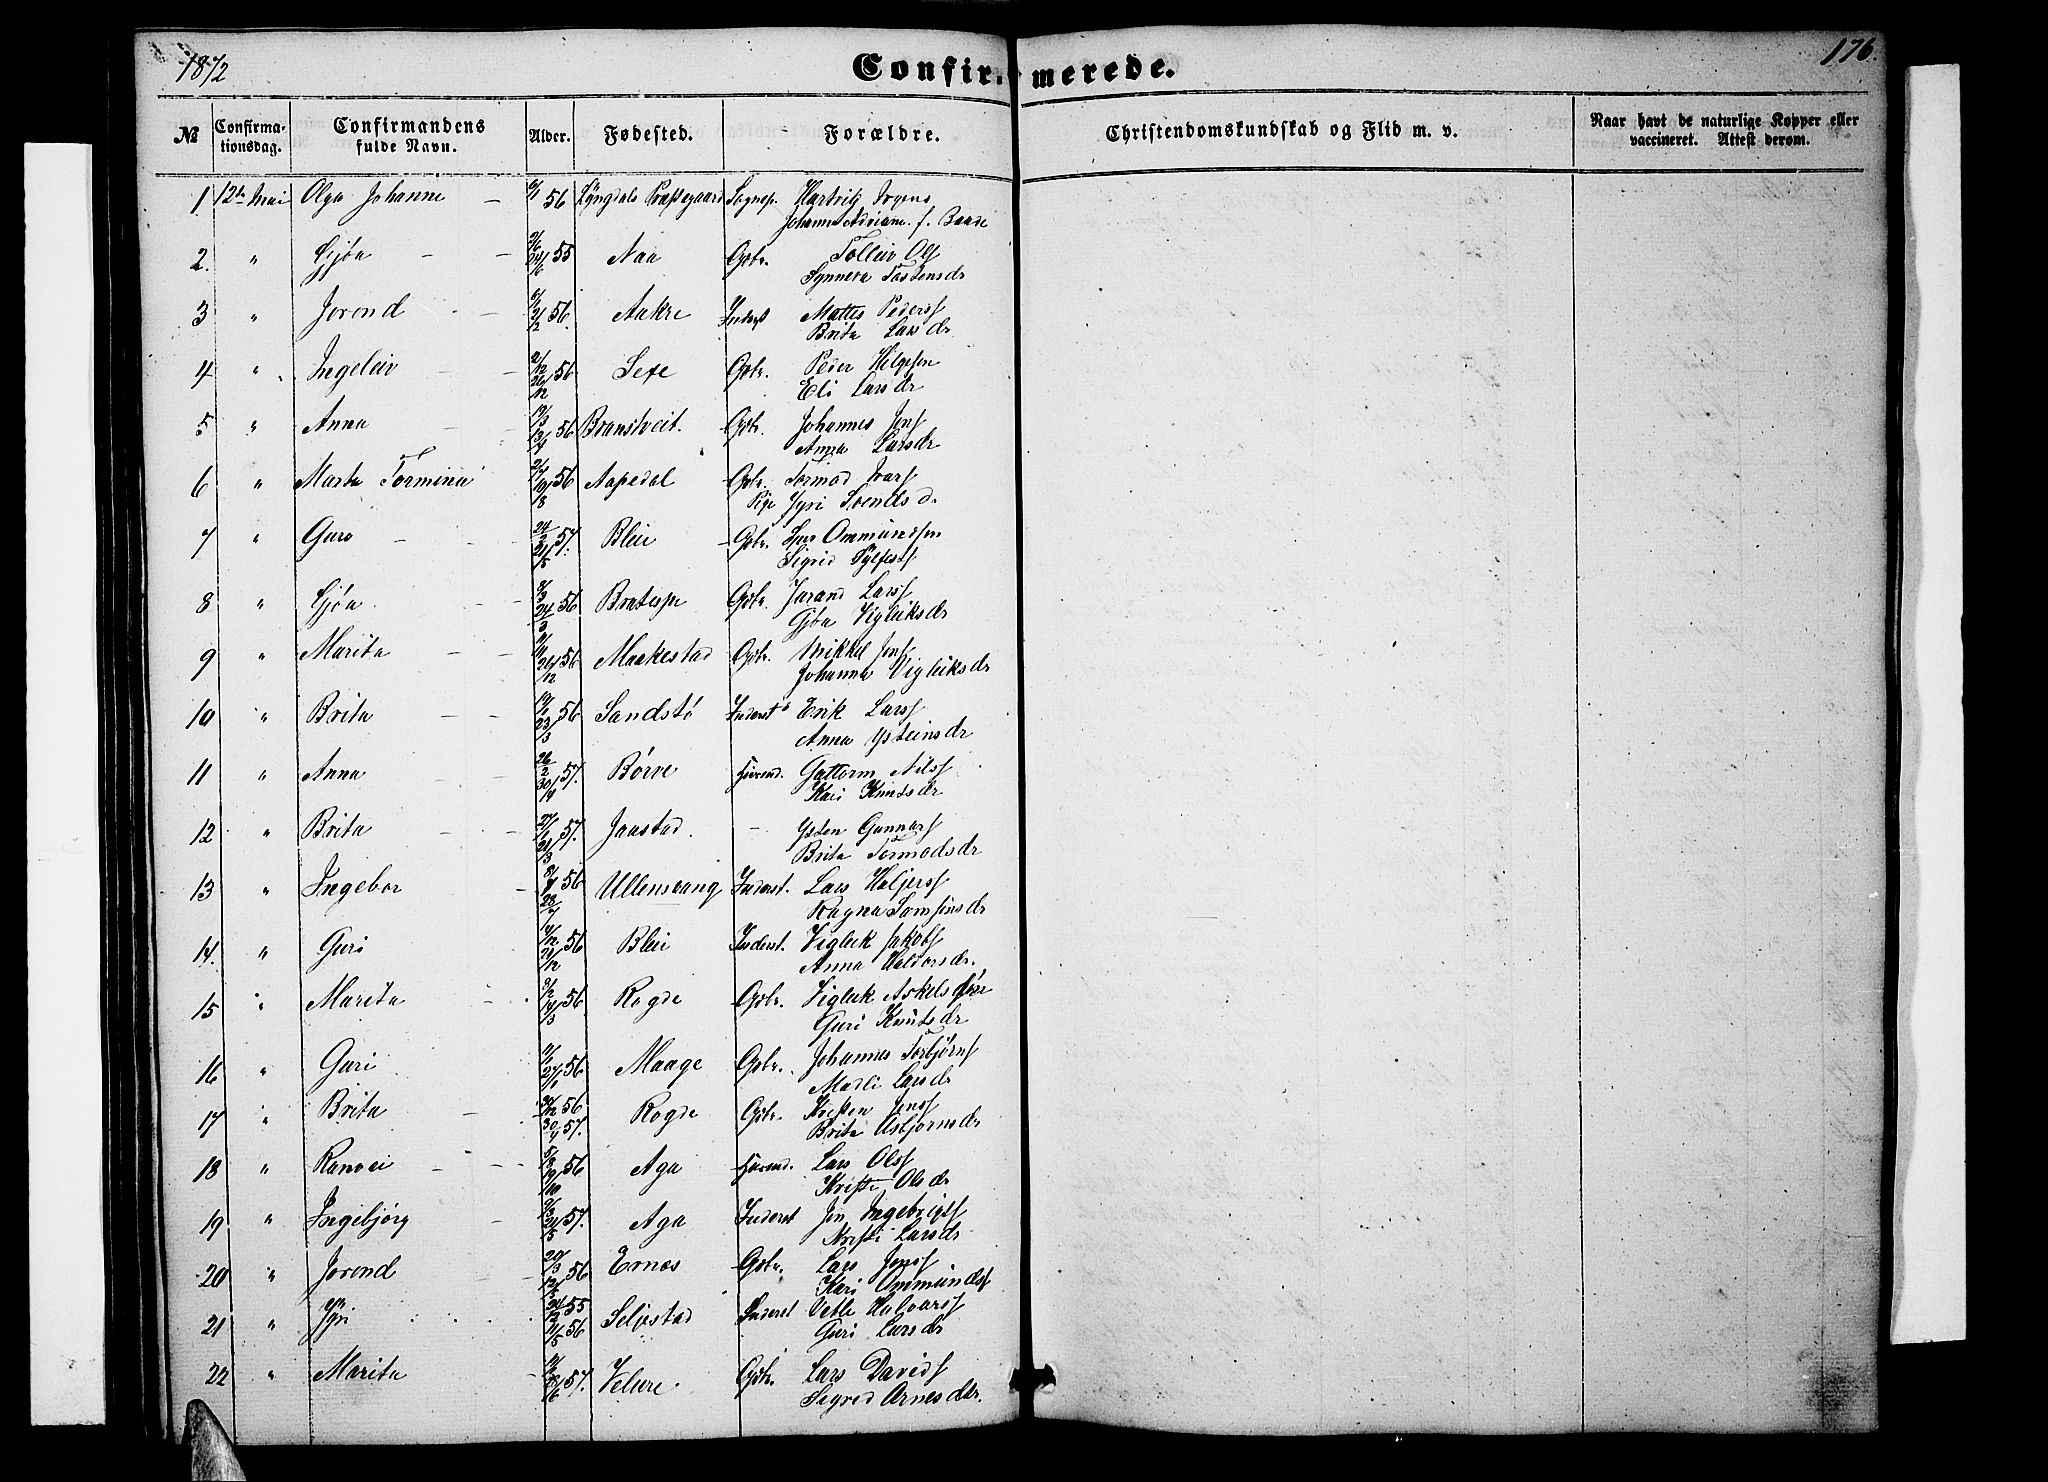 1872 Confirmerede. 176.
№ Confirmationsdag. Confirmandens fulde Navn. Alder. Fødested. Forældre. Christendomskundskab og Flid m. v. Naar havt de naturlige Kopper eller vaccineret. Attest derom.
1 12te Mai Olga Johanne 56 Lyngdals Præstegaard Sognep. Hartvig Irgens
Johanne Adriane f. Baade
2. " Gjøa 55 Naa Gbr. Tolleiv Ols
Synneva Tostensdr
3 " Jorond 56. Aakre Inderst Mattes Peders
Brita Larsdr
4 " Ingeleiv 56 Sexe Gbr. Peder Helgesen
Eli Larsdr
5 " Anna 19/3 13/4 56 Branstveit. Gbr. Johannes Jons
Anna Larsdr
6 " Marta Tormina 56 Aapedal Gbr. Tormod Ivars
Pige Jyri Svendsd.
7 " Guro 57. Bleie Gbr. Ommundsen
Sigrid
8 " Gjøa 24/3 56 Bratespe Gbr. Jurand Lars
Gjøa Vigleiksdr
9 " Marita 56 Maakestad Gbr. Mikkel Jons
Johanna Vigleiksdr
10 " Brita 23/3 56 Sandstø Inderst Erik Lars
Anna Ysteinsdr
11 " Anna 26/2 30/4 57. Børve Guttorm Nils
Kari Knutsdr
12 " Brita 57. Jaastad. – Ysten Gunnars
Brita Tormodsdr
13 " Ingebor 28/7 56 Ullensvang Inderst. Lars Haljers
Ragna Samsonsdr
14. " Guri 56 Bleie Inderst. Vigleik Jakobs
Anna Haldorsdr.
15 " Marita 56 Rogde Gbr. Vigleik Askels
Guri Knutsdr
16 " Guri 27/1 56 Maage Gbr. Johannes Torbjørns
Madli Larsdr
17 " Brita 56 Rogde Gbr. Kristen Jons
30/4 57. Brita Asbjørnsdr
18 " Ranvei 56 Aga Lars Ols
Kristi Olsdr
19 " Ingebjørg 57. Aga Inderst Jon Ingebrigts
Kristi Larsdr
20 " Jorond 20/3 56 Ernæs Gbr. Lars Jons
Kari Ommunds
21 " Jyri 55 Seljestad Inderst Vetle Halvars
56 Guri Larsdr
22 " Marita 57. Velure Gbr. Lars Davids
Sigrid Arnesdtr.